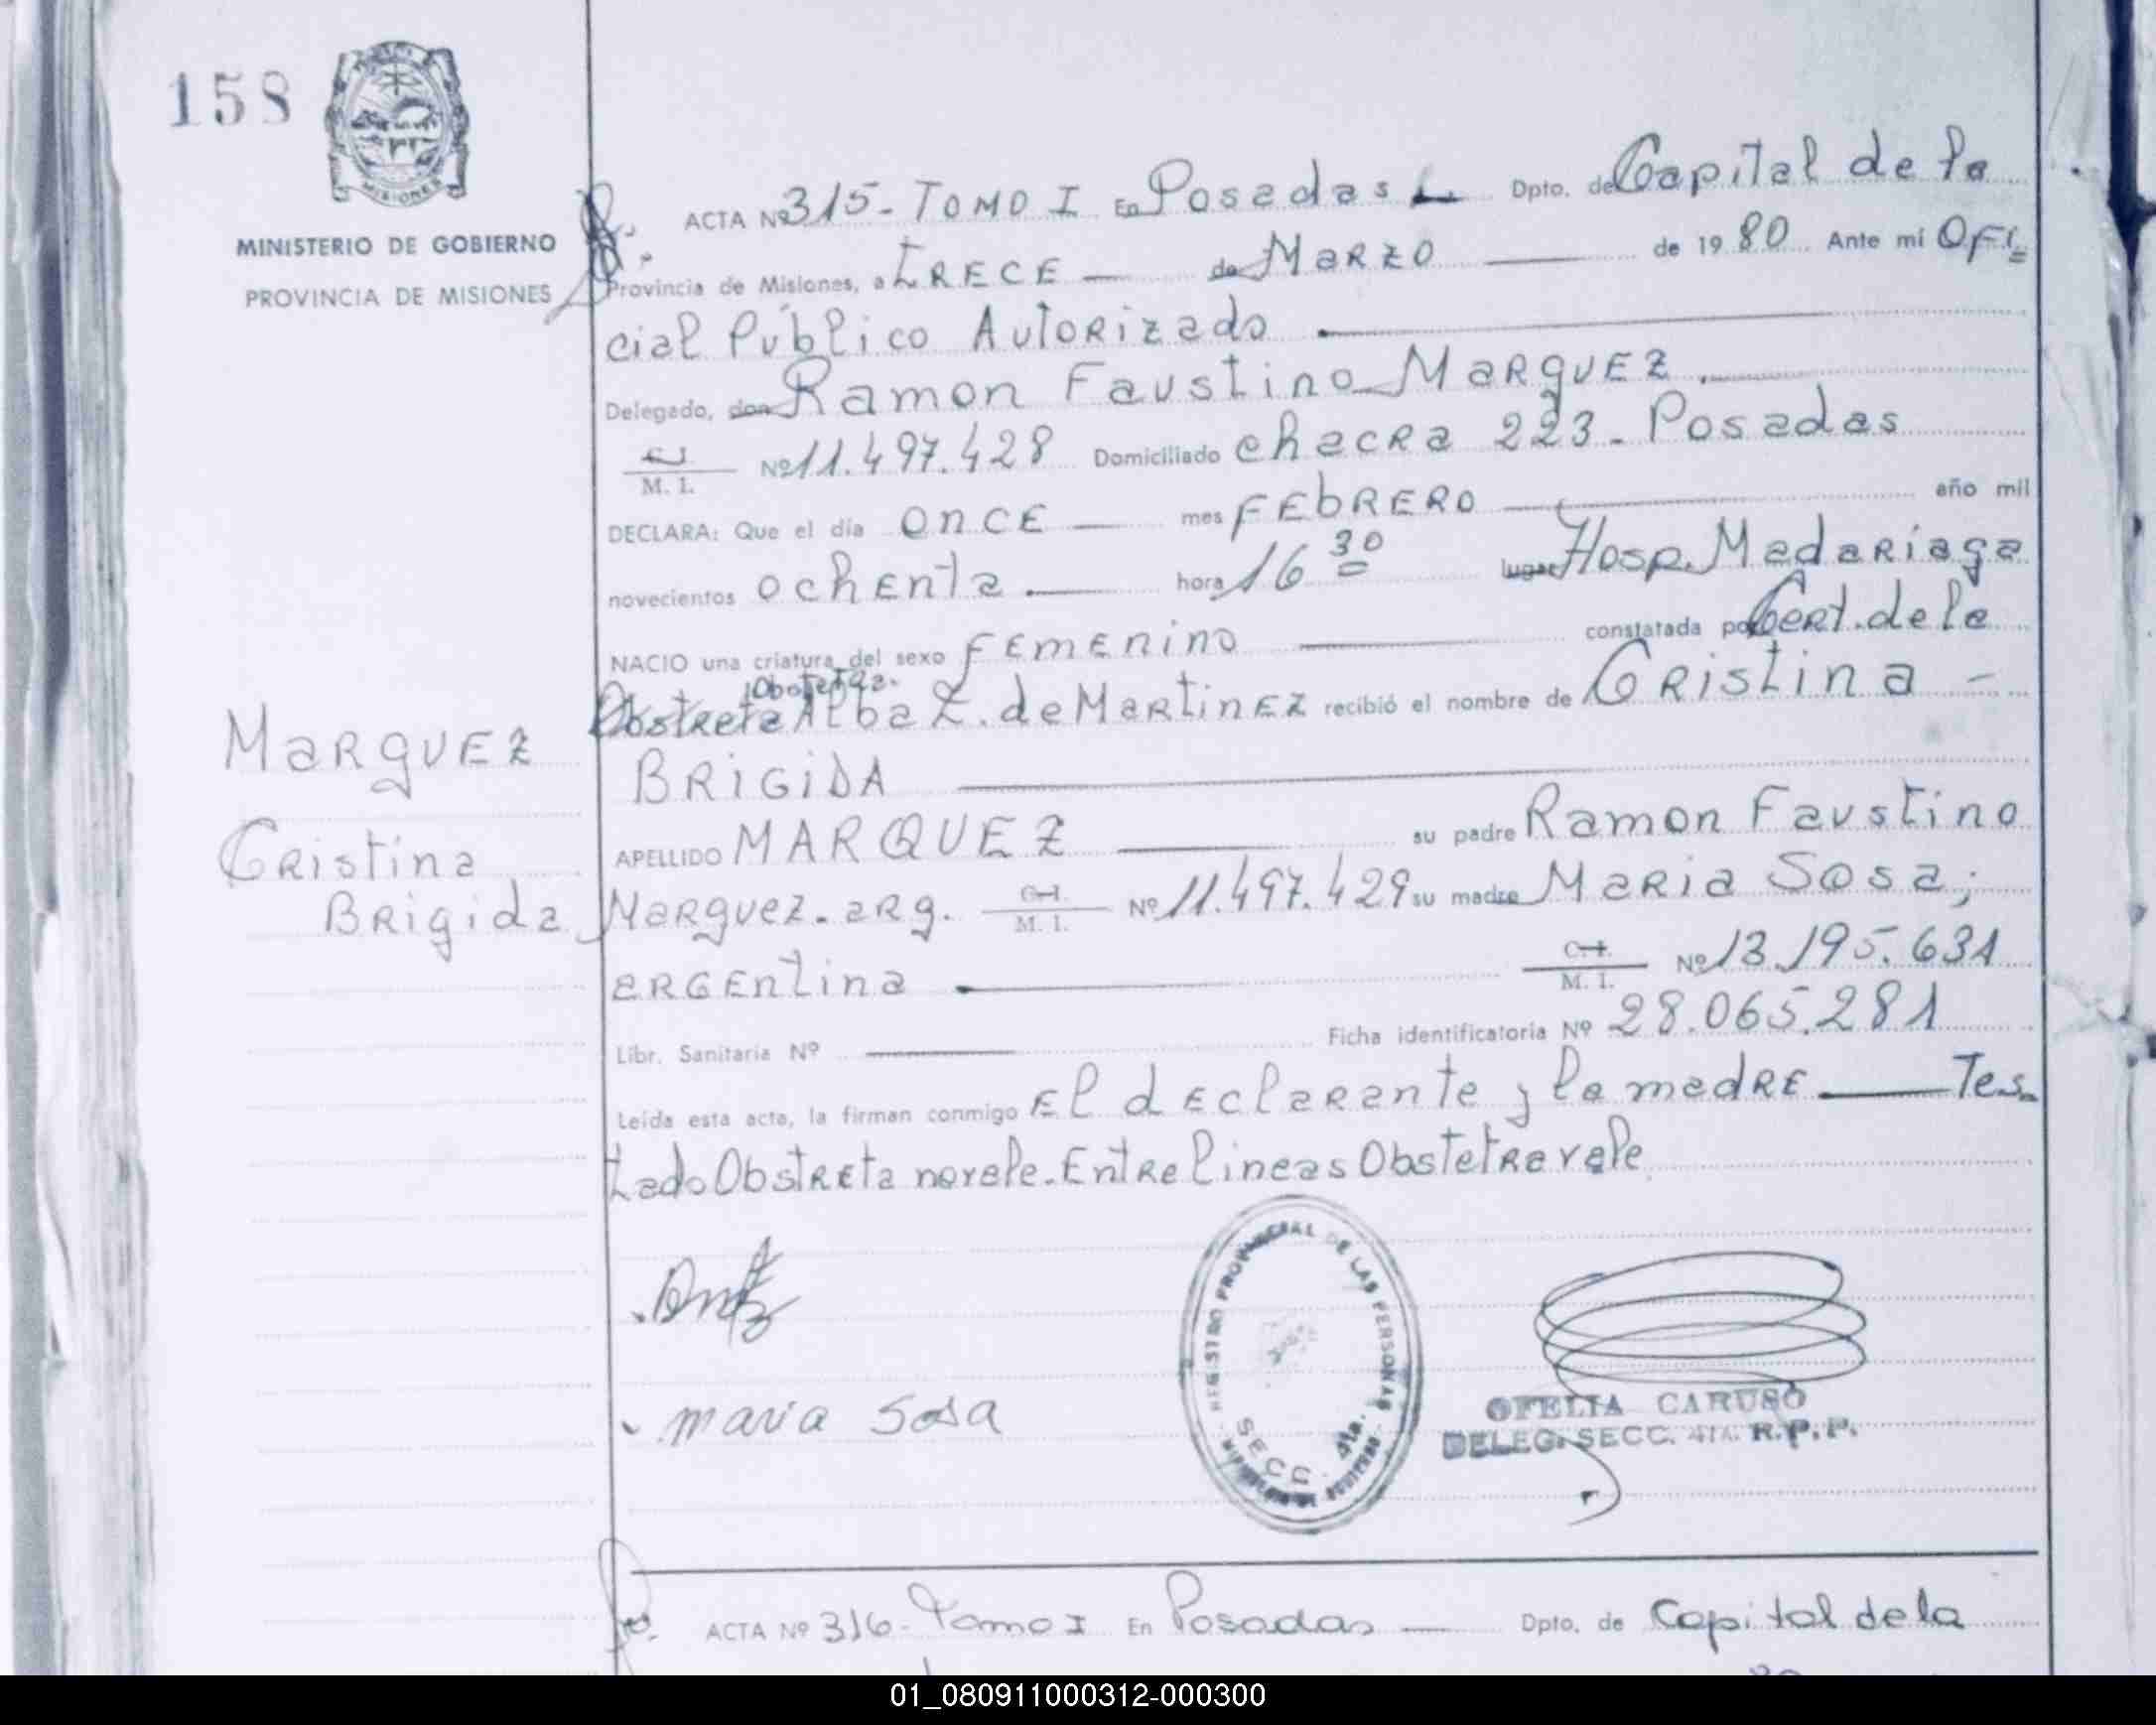 158
MISIONES
MINISTERIO DE GOBIERNO
PROVINCIA DE MISIONES
ACTA Nº 315- TOMO I En Posadas Dpto. de Capital de la
Provincia de Misiones, a TRECE — de MARZO — de 1980 Ante mí OFI=
cial Público Autorizado —
Delegado, don Ramon Faustino MARquEZ.
C.I. M. I. Nº 11.497.428 Domiciliado chacRa 223- Posadas
DECLARA: Que el día OnCE — mes FEbRERO — año mil
novecientos ochEnta — hora 16 30 lugar Hosp. MadaRiaga
NACIO una criatura del sexo FEmEninO — constatada por Cert. de la
Obstetra.
Obstreta Alba Z. de MaRtinEZ recibió el nombre de CRistina -
BRIGIDA —
MaRquEZ
APELLIDO MARQUEZ — su padre Ramon Faustino
CRistina
BRigida
Marquez- aRg. C.I. M. I. Nº 11.497.429 su madre MaRia Sosa;
aRGEntina — C.I. M. I. Nº 13.195.631
Libr. Sanitaria Nº — Ficha identificatoria Nº 28.065.281
Leída esta acta, la firman conmigo El dEclaRante y la madRE — Tes-
tado Obstreta no vale. Entre lineas Obstetra vale
maria Sosa
REGISTRO PROVINCIAL DE LAS PERSONAS
SECC. 4ta.
MINISTERIO DE GOBIERNO
OFELIA CARUSO
DELEG. SECC. 4ta. R.P.P.
ACTA Nº 316- Tomo I En Posadas — Dpto. de Capital de la
01_080911000312-000300